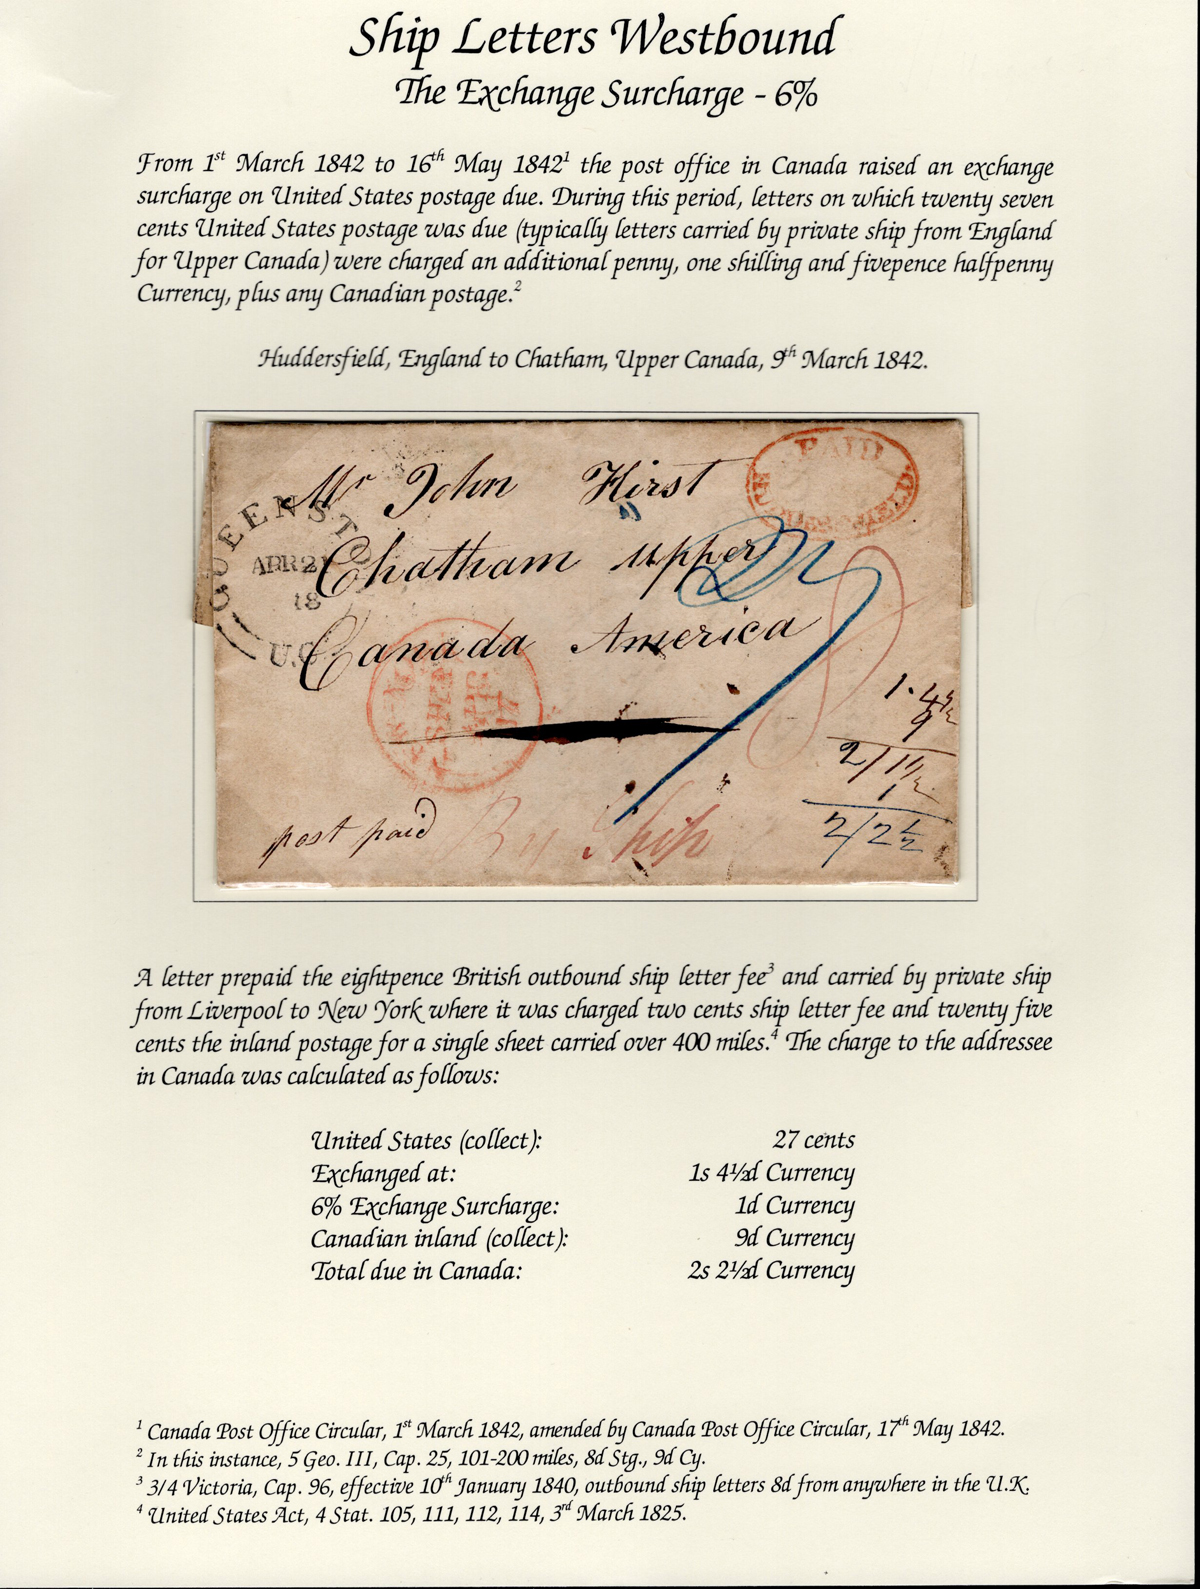 Ship Letters Westbound
The Exchange Surcharge - 6%
From 1st March 1842 to 16th May 1842¹ the post office in Canada raised an exchange
surcharge on United States postage due. During this period, letters on which twenty seven
cents United States postage was due (typically letters carried by private ship from England
for Upper Canada) were charged an additional penny, one shilling and fivepence halfpenny
Currency, plus any Canadian postage.²
Huddersfield, England to Chatham, Upper Canada, 9th March 1842.
PAID
Mr John Hirst
QUEENSTO
APR 2
18
U.C
Chatham Upper
Canada America
27
8
SHIP
1·4½
9
2/1½
1
2/2½
post paid
By Ship
A letter prepaid the eightpence British outbound ship letter fee³ and carried by private ship
from Liverpool to New York where it was charged two cents ship letter fee and twenty five
cents the inland postage for a single sheet carried over 400 miles.⁴ The charge to the addressee
in Canada was calculated as follows:
United States (collect): 27 cents
Exchanged at: 1s 4½d Currency
6% Exchange Surcharge: 1d Currency
Canadian inland (collect): 9d Currency
Total due in Canada: 2s 2½d Currency
¹ Canada Post Office Circular, 1st March 1842, amended by Canada Post Office Circular, 17th May 1842.
² In this instance, 5 Geo. III, Cap. 25, 101-200 miles, 8d Stg., 9d Cy.
³ 3/4 Victoria, Cap. 96, effective 10th January 1840, outbound ship letters 8d from anywhere in the U.K.
⁴ United States Act, 4 Stat. 105, 111, 112, 114, 3rd March 1825.